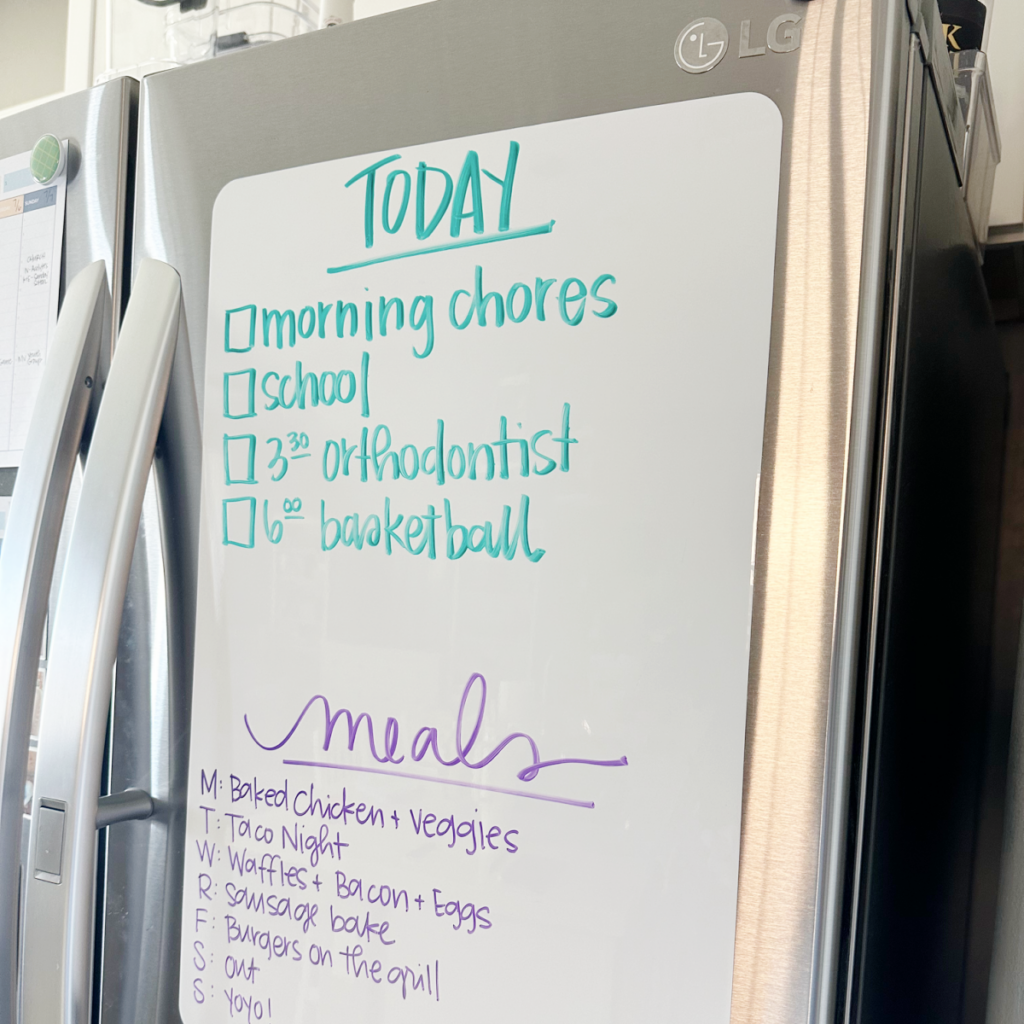 LG
TODAY
morning chores
school
3:30 orthodontist
6:00 basketball
meals
M: Baked Chicken + Veggies
T: Taco Night
W: Waffles + Bacon + Eggs
R: Sausage bake
F: Burgers on the grill
S: out
S: YOYO!